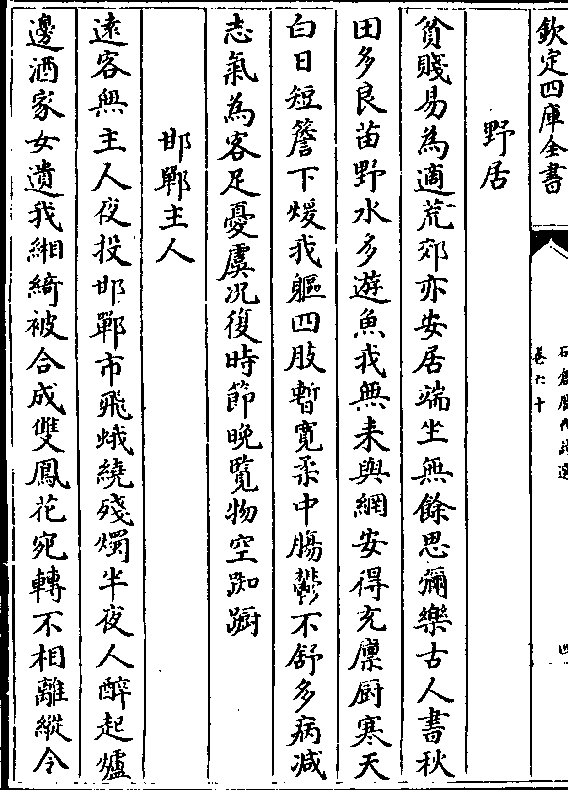 欽定四庫全書
卷六十
四
野居
貧賤易為適荒郊亦安居端坐無餘思彌樂古人書秋
田多良苗野水多遊魚我無耒與網安得充廩厨寒天
白日短簷下煖我軀四肢暫寛柔中膓鬱不舒多病减
志氣為客足憂虞况復時節晚覽物空踟蹰
邯鄲主人
逺客無主人夜投邯鄲市飛蛾繞殘燭半夜人醉起爐
邊酒家女遺我緗綺被合成雙鳳花宛轉不相離縱令